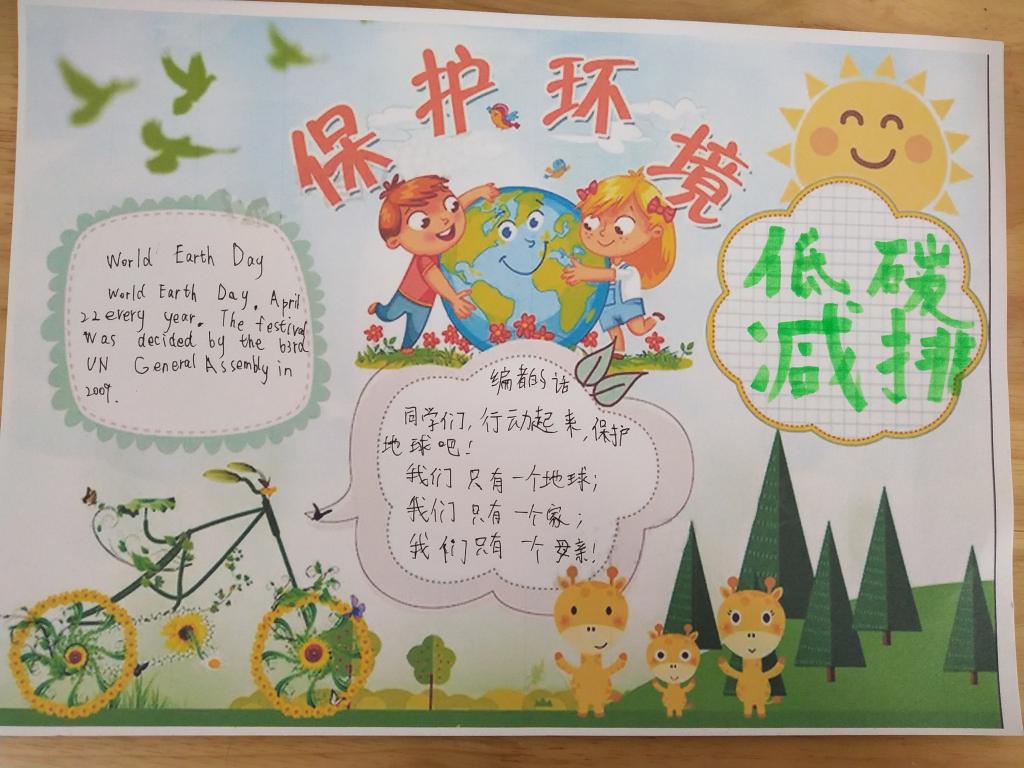 保护环境
World Earth Day
World Earth Day. April
22 every year. The festival
was decided by the b3rd
UN General Assembly in
2009.
编者的话
同学们,行动起来,保护
地球吧!
我们只有一个地球;
我们只有一个家;
我们只有一个母亲!
低碳
减排